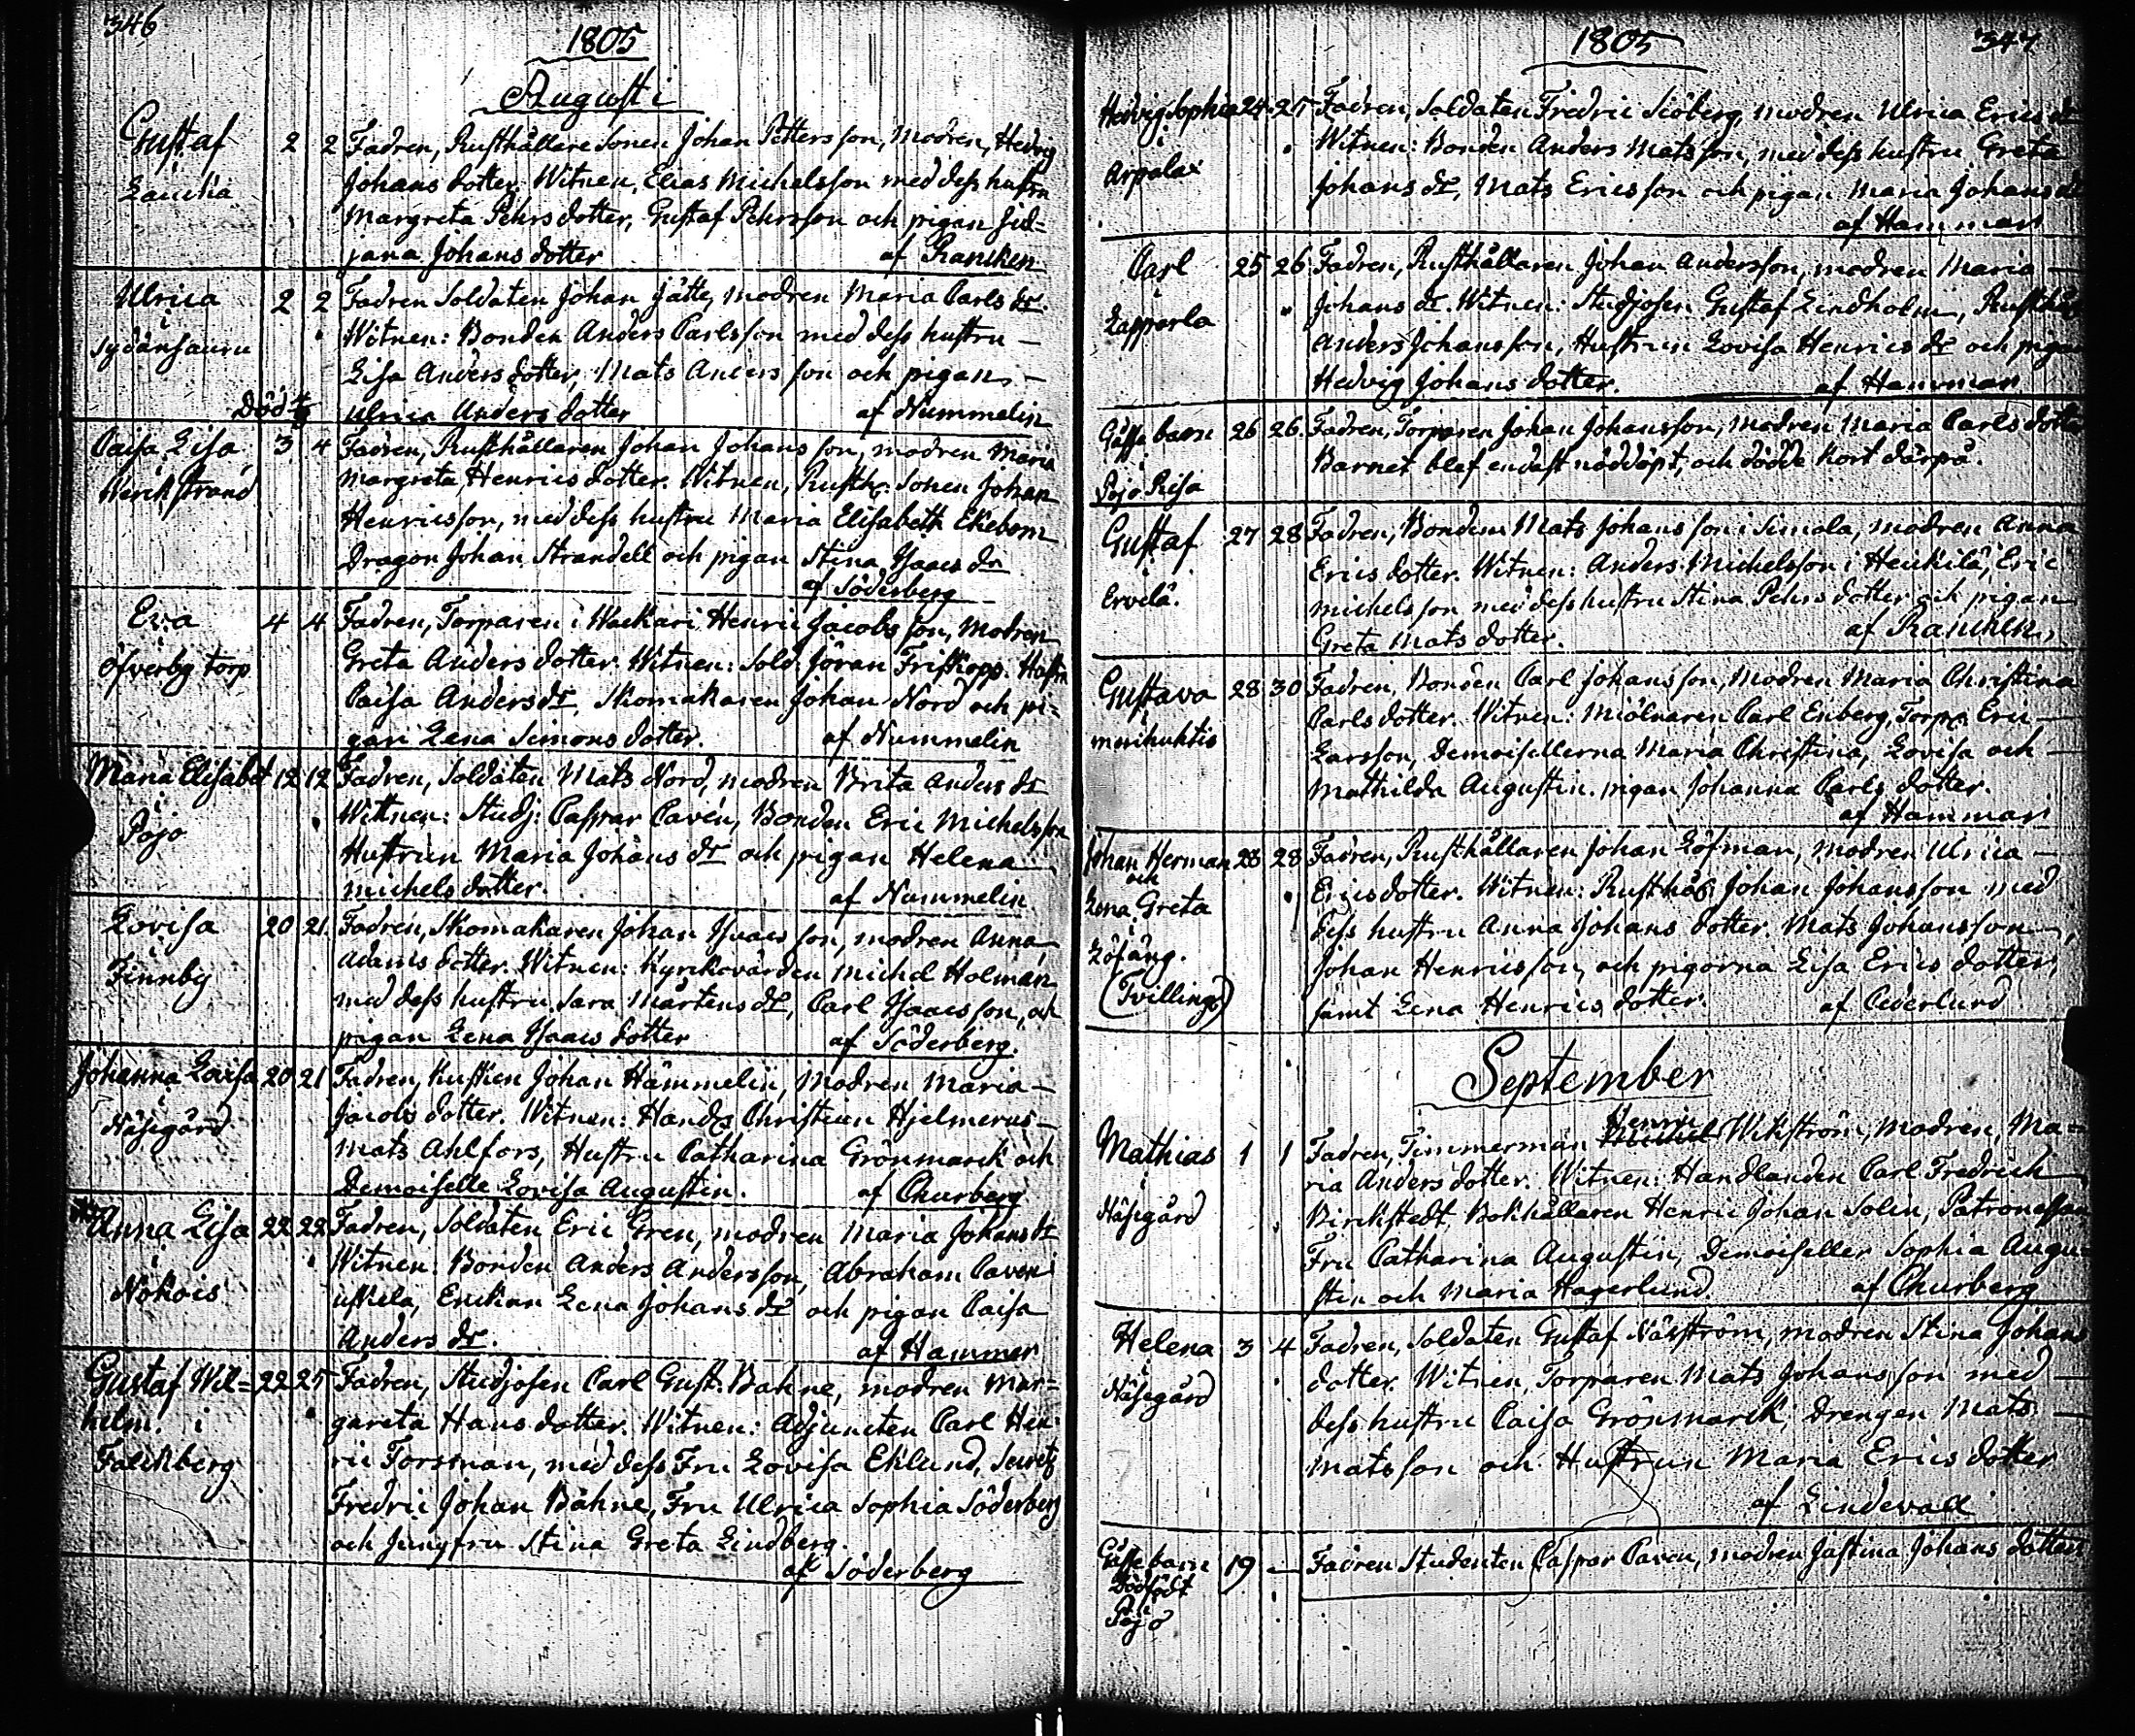 346
1805
Augusti
Gustaf
i
Lauttia
2 2 Fadren, Rusthållare Sonen Johan Pettersson, Modren, Hedvig
Johans dotter. Witnen, Elias Michelsson med dess hustru
Margreta Pehrs dotter, Gustaf Pehrsson och pigan Jid=
jana Johans dotter af Rancken
Ulrica
i
Sydänsauru
Död
2 2 Fadren Soldaten Johan Jätte, modren Maria Carls dr.
Witnen: Bonden Anders Carlsson med dess hustru —
Lisa Anders dotter, Mats Andersson och pigan —
Ulrica Anders dotter af Nummelin
Caisa Lisa
i
Merikstrand
3 4 Fadren, Rusthållaren Johan Johansson, modren Maria
Margreta Henrics dotter. Witnen, Rusth. Sonen Johan
Henricsson, med dess hustru Maria Elisabeth Ekebom
Dragon Johan Strandell och pigan Stina Isaacs dr
af Söderberg
Eva
i
Öfverby torp
4 4 Fadren, Torparen i Wackari Henric Jacobsson, Modren
Greta Anders dotter. Witnen: Sold. Jöran Friskopp. Hustr.
Caisa Anders dr, Skomakaren Johan Nord och pi=
gan Lena Simons dotter. af Nummelin
Maria Elisabet
i
Pojo
12 12 Fadren, Soldaten Mats Nord, modren Brita Anders dr
Wittnen: Studj: Caspar Cavén, Bonden Eric Michelsson
Hustrun Maria Johans dr och pigan Helena
Michels dotter. af Nummelin
Lovisa
i
Finnby
20 21. Fadren, Skomakaren Johan Isaacsson, modren Anna
Adams dotter. Witnen: Kyrkovärden Michel Holman
med dess hustru Sara Mårtens dr, Carl Isaacsson, och
pigan Lena Isaacs dotter af Söderberg.
Johanna Lovisa
i
Näsegård
20 21 Fadren, Kusken Johan Hämmelin, Modren Maria —
Jacobs dotter. Witnen: Handl. Christian Hjelmerus —
Mats Ahlfors, Hustru Catharina Grönmarck och
Demoiselle Lovisa Augustin. af Churberg
Anna Lisa
i
Nokois
22 22 Fadren, Soldaten Eric Gren, modren Maria Johans dr
Witnen: Bonden Anders Andersson, Abraham Caven i
Uskela, Enkan Lena Johans dr och pigan Caisa
Anders dr. af Hammar
Gustaf Wil=
helm i
Falckberg
22 25 Fadren, Studjosen Carl Gust. Bahne, modren Mar=
gareta Hans dotter. Witnen: Adjuncten Carl Hen=
ric Forsman, med dess Fru Lovisa Eklund,
Fredric Johan Bahne, Fru Ulrica Sophia Söderberg
och Jungfru Stina Greta Lindberg.
af Söderberg
1805
347
Hedvig Sophia
i
Arpalax
24 25 Fadren, Soldaten Fredric Siöberg, modren Ulrica Erics dr
Witnen: Bonden Anders Matsson, med dess hustru Greta
Johans dr, Mats Ericsson och pigan Maria Johans dr
af Hammar
Carl
i
Lapparla
25 26 Fadren, Rusthållaren Johan Andersson, modren Maria —
Johans dr. Witnen: Studjosen Gustaf Lindholm, Rusthål
Anders Johansson, Hustrun Lovisa Henrics dr och pigan
Hedvig Johans dotter. af Hammar
Gåsse barn
i
Pojo Risa
26 26. Fadren, Torparen Johan Johansson, modren Maria Carls dotter
Barnet blef endast nöddöpt, och dödde kort därpå.
Gustaf
i
Ervelä.
27 28 Fadren, Bonden Mats Johansson i Simala, modren Anna
Erics dotter. Witnen: Anders Michelsson i Heickilä, Eric
Michelsson med dess hustru Stina Pehrs dotter och pigan
Greta Mats dotter. af Rancken,
Gustava
i
Merihuhtis
28 30 Fadren, Bonden Carl Johansson, Modren Maria Christina
Carls dotter. Witnen: Miölnaren Carl Enberg, Torp. Eric —
Larsson, Demoisellerna Maria Christina, Lovisa och —
Mathilda Augustin. pigan Johanna Carls dotter.
af Hammar
Johan Herman
och
Lena Greta
i
Löfäng.
(Tvillingar)
28 28 Fadren, Rusthållaren Johan Löfman, modren Ulrica —
Ericsdotter. Witnen: Rusthål. Johan Johansson med
dess hustru Anna Johans dotter. Mats Johansson —,
Johan Henricsson, och pigorna Lisa Erics dotter,
samt Lena Henrics dotter. af Cederlund
September
Mathias
i
Näsegård
1 1 Fadren, Timmerman Henric Wikström, Modren, Ma=
ria Anders dotter. Witnen: Handlanden Carl Fredrich
Birckstedt, Bokhållaren Henric Johan Solin, Patronessan
Fru Catharina Augustin, Demoiseller Sophia Augu=
stin och Maria Hagerlund. af Churberg
Helena
i
Näsegård
3 4 Fadren, Soldaten Gustaf Näsström, modren Stina Johans
dotter. Witnen, Torparen Mats Johansson med —
dess hustru Caisa Grönmarck, Drengen Mats —
Matsson och Hustrun Maria Erics dotter
af Lindevall
Gåsse barn
Dödfödt
i
Pojo
19 — Fadren Studenten Caspar Caven, modren Justina Johans dotter